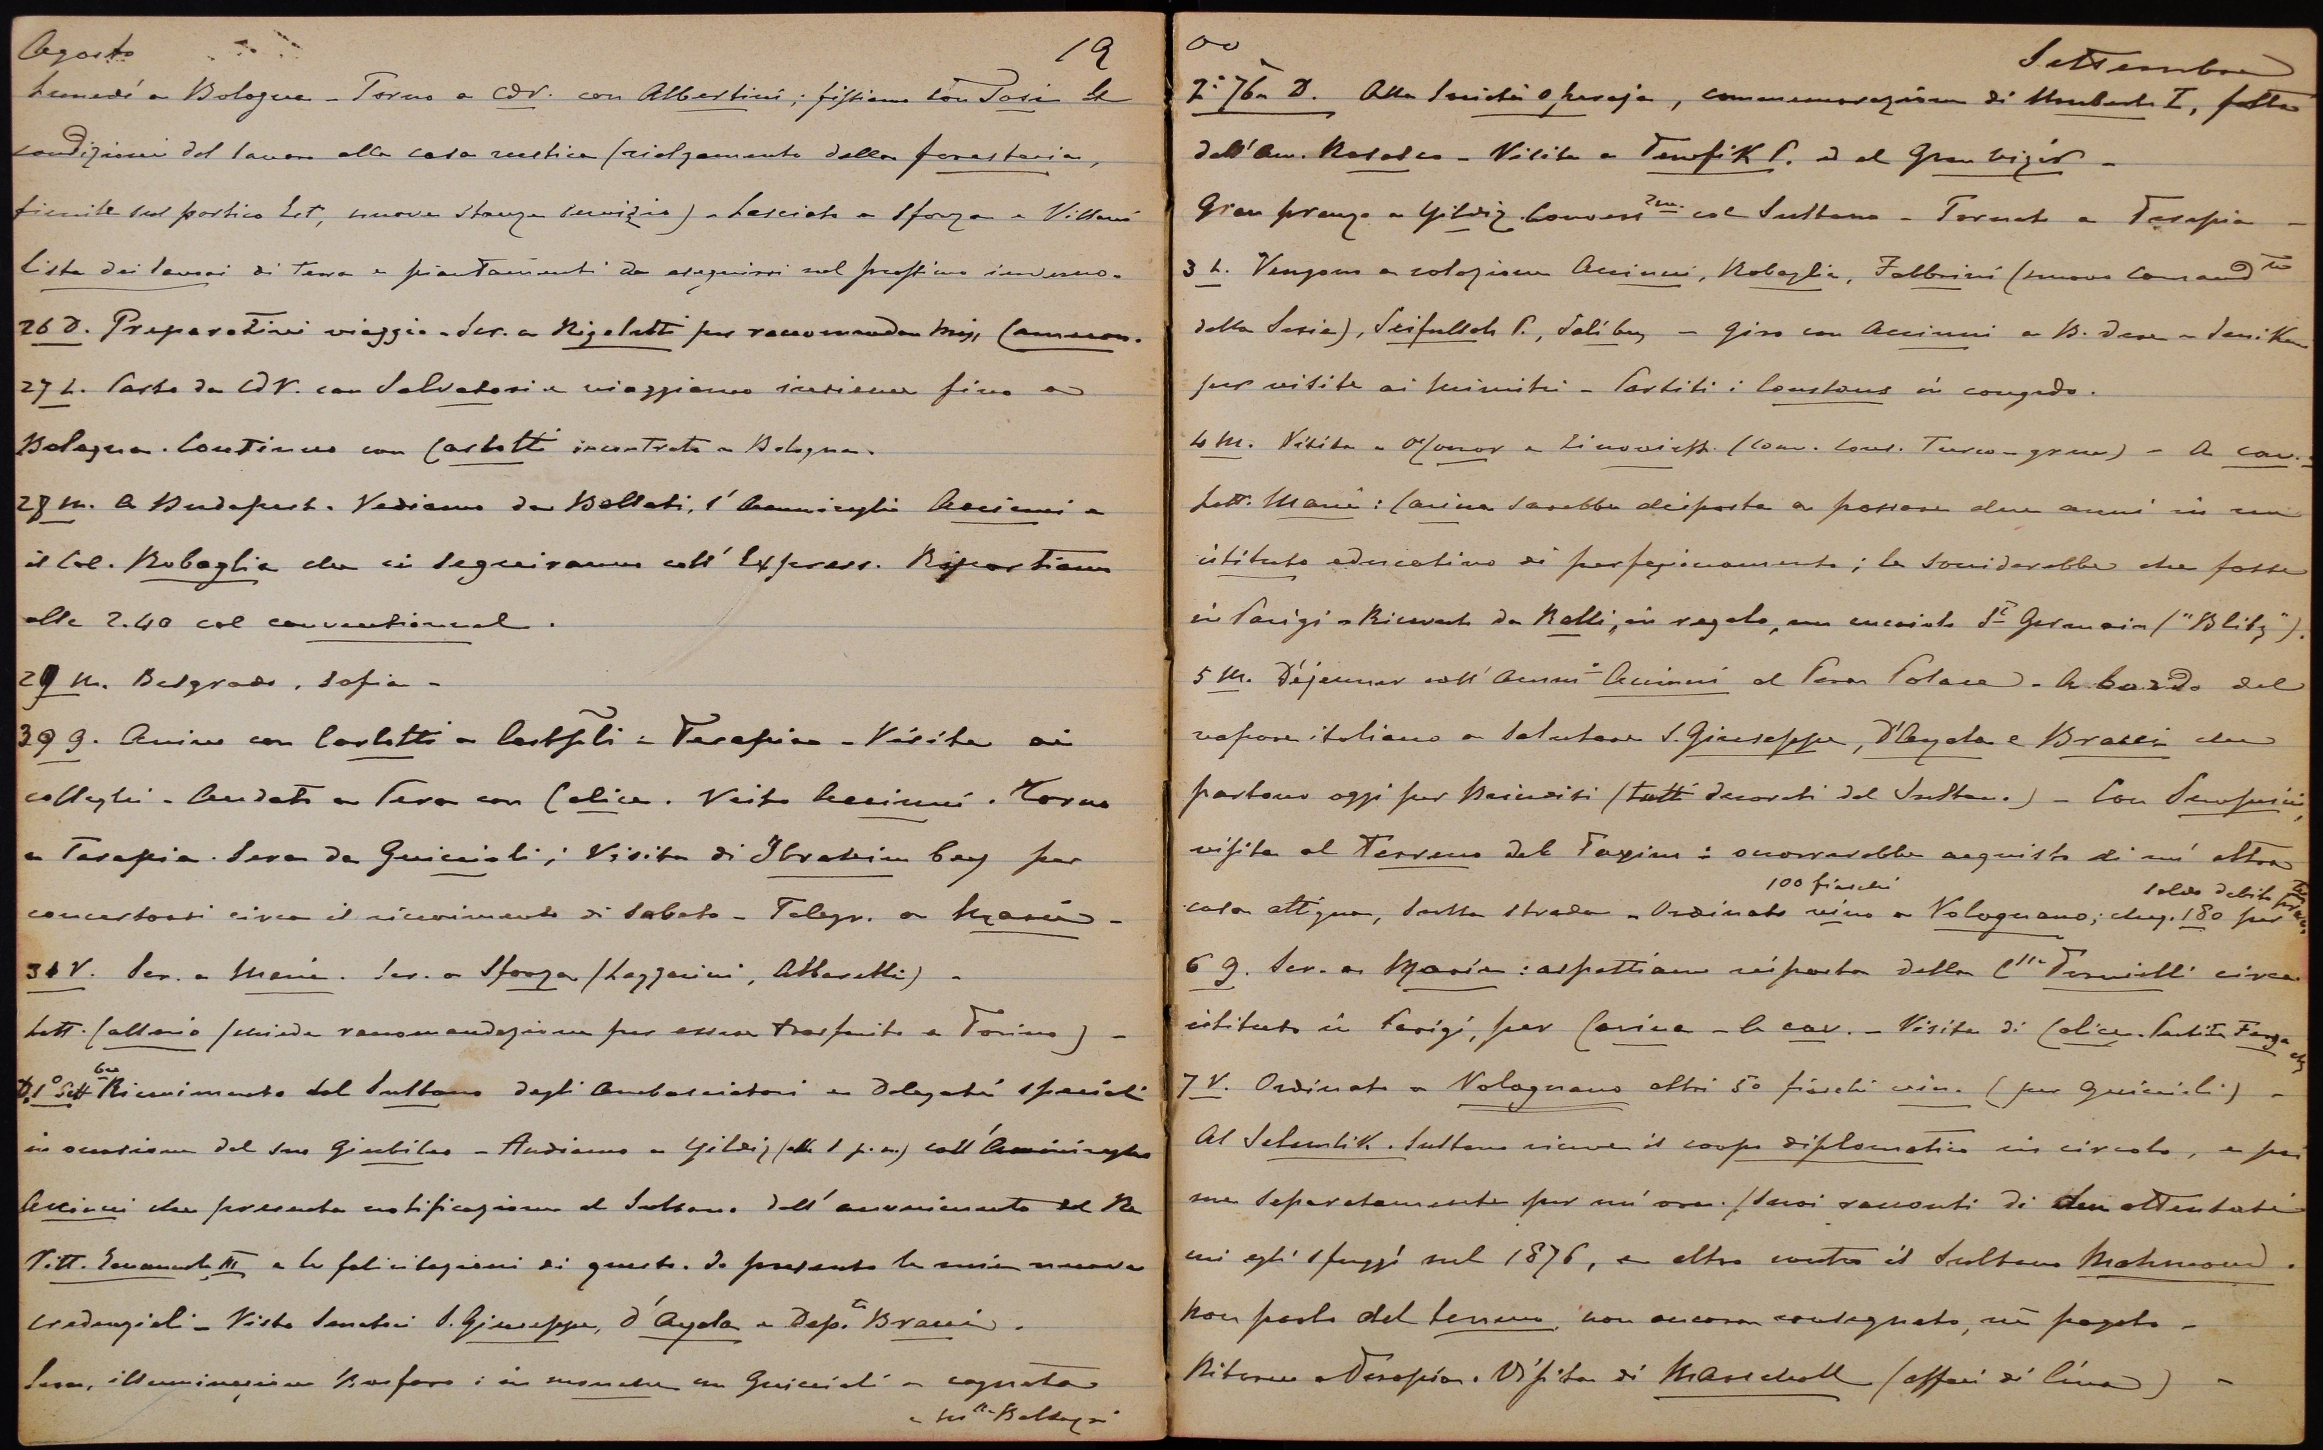 Agosto 19
lunedí a Bologna - Torno a CdV. con Albertini; fissiamo con Tosi le
condizioni del lavoro alla casa rustica (rialzamento della foresteria,
fienile sul portico Est, nuove stanze servizio) - Lasciato a Sforza e Villani
lista dei lavori di terra e piantamenti da eseguirsi nel prossimo inverno.
26 D. Preparativi viaggio - Scr. a Nigoletti per raccomandar Miss Cameron.
27 L. Parto da CdV. con Salvatori e viaggiamo insieme fino a
Bologna. Continuo con Carlotti incontrato a Bologna.
28 M. A Budapest. Vediamo da Bollati, l'Ammiraglio Accinni e
il Col. Robaglia che ci seguiranno coll'Express. Ripartiamo
alle 2.40 col conventionnel.
29 M. Belgrado, Sofia -
30 G. Arrivo con Carlotti a Costpli e Terapia - Visite ai
colleghi - Andato a Pera con Calice. Visto Accinni. Torno
a Terapia. Sera da Guiccioli; visita di Ibrahim bey per
concertarsi circa il ricevimento di sabato - Telegr. a Maria -
31 V. Scr. a Maria. Scr. a Sforza (Lazzarini, Albarelli) -
Lett. (chiede raccomandazione per essere trasferito a Torino) -
D. 1° Sett.bre Ricevimento dal Sultano degli ambasciatori e delegati speciali
in occasione del suo Giubileo - Andiamo a Yildiz (alle 1 p.m.) coll'Ammiraglio
Accinni che presenta notificazione al Sultano dell'avvenimento del Re
Vitt. Emanuele III e le felicitazioni di questo. Io presento le mie nuove
credenziali - Visto Senatori S. Giuseppe, d'Ayala e Dep.ti Bracci.
Sera, illuminazione Bosforo: in mouche con Guiccioli e cognata
e M.lle Baltazzi
00 Settembre
2. D. Alla Società Operaja, commemorazione di Umberto I, fatta
dall'Avv. Rosasco - Visita a Tewfik P. ed al Gran Vizir -
Gran pranzo a Yildiz. Convers.zne col Sultano - Tornato a Terapia -
3 L. Vengono a colazione Accinni, Robaglia, Fabbrini (nuovo Comand.te
della Sesia), Seifullah P., Salíbey - Giro con Accinni a B. dere e Jenikeu
per visite ai Ministri - Partiti i Constans in congedo.
4 M. Visita a O'Conor e Zinovieff. (conv. cons. Turco-greca) - A cav. -
Lett. Maria: Carina sarebbe disposta a passare due anni in un
istituto educativo di perfezionamento; le sorriderebbe che fosse
in Parigi - Ricevuto da Ralli, in regalo, un cucciolo St Germain ("Blitz").
5 M. Déjeuner coll'Amm.° Accinni al Pera Palace - A bordo del
vapore italiano a salutare S. Giuseppe, D'Ayala e Bracci che
partono oggi per Brindisi (tutti decorati dal Sultano) - Con Semprini,
visita al Terreno del Taxim: occorrerebbe acquisto di un'altra
casa attigua, sulla strada - Ordinato 100 fiaschi vino a Volognano; cheq. 180 per saldo debito
6 G. Scr. a Maria: aspettiamo risposta della C.ssa Tornielli circa
istituto in Parigi, per Carina - A cav. - Visita di Calice.
7 V. Ordinato a Volognano altri 50 fiaschi vino (per Guiccioli) -
Al Selamlik. Sultano riceve il corpo diplomatico in circolo, e poi
me separatamente per un'ora. (Suoi racconti di due attentati
cui egli sfuggì nel 1876, e altro contro il Sultano Mahmoud.
Non parlo del terreno, non ancora consegnato, nè pagato -
Ritorno a Terapia. Visita di Marschall (affari di Cina) -